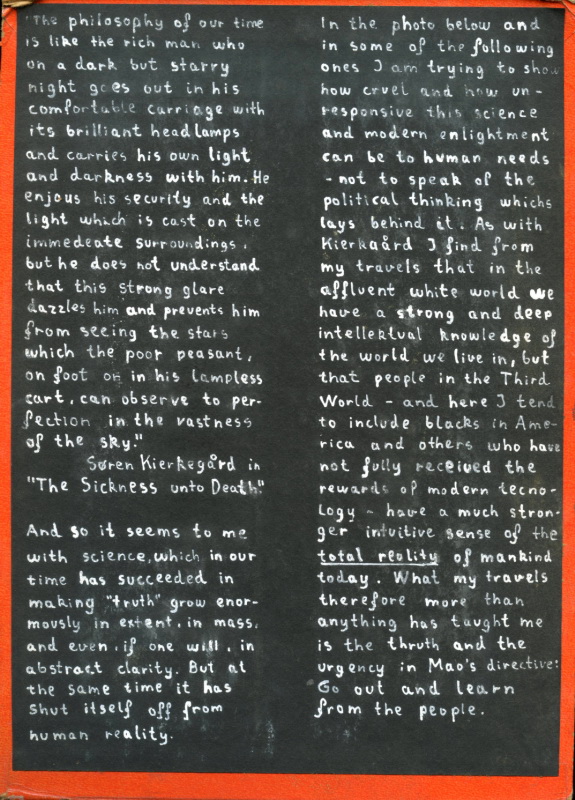 "The philosophy of our time
is like the rich man who
on a dark but starry
night goes out in his
comfortable carriage with
its brilliant head lamps
and carries his own light
and darkness with him. He
enjous his security and the
light which is cast on the
immedeate surroundings,
but he does not understand
that this strong glare
dazzles him and prevents him
from seeing the stars
which the poor peasant,
on foot or in his lampless
cart, can observe to per-
fection in the vastness
of the sky."
Søren Kierkegård in
"The Sickness unto Death."
And so it seems to me
with science, which in our
time has succeeded in
making "truth" grow enor-
mously in extent, in mass,
and even, if one will, in
abstract clarity. But at
the same time it has
shut itself off from
human reality.
In the photo below and
in some of the following
ones I am trying to show
how cruel and how un-
responsive this science
and modern enlightment
can be to human needs
- not to speak of the
political thinking whichs
lays behind it. As with
Kierkgård I find from
my travels that in the
affluent white world we
have a strong and deep
intellektual knowledge of
the world we live in, but
that people in the Third
World - and here I tend
to include blacks in Ame-
rica and others who have
not fully received the
rewards of modern tecno-
logy - have a much stron-
ger intuitive sense of the
total reality of mankind
today. What my travels
therefore more than
anything has taught me
is the thruth and the
urgency in Mao's directive:
Go out and learn
from the people.